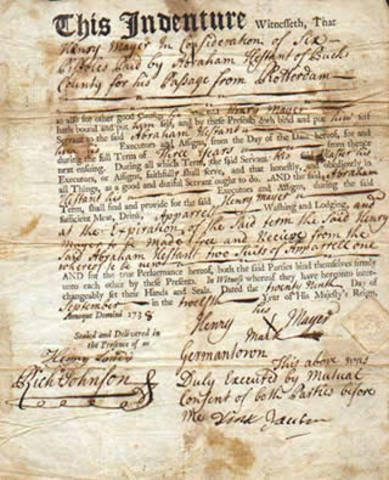 This Indenture Witnesseth, That
Henry Mayer In Consideration of Six
Pistoles Paid by Abraham Hestant of Bucks
County for his Passage from Rotterdam
as also for other good Henry Mayer
hath bound and put him self, and by these Presents doth bind and put him self
Servant to the said Abraham Hestant
Executors and Assigns, from the Day of the Date hereof, for and
during the full Term of Three Years from thence
next ensuing. During all which Term, the said Servant his said Master his
Executors, or Assigns, faithfully shall serve, and that honestly, and obediently in
all Things, as a good and dutiful Servant ought to do. AND the said Abraham
Hestant his Executors and Assigns, during the said
Term, shall find and provide for the said Henry Mayer
sufficient Meat, Drink, Apparrel Washing and Lodging, and
at the Expiration of the said term the said Henry
Mayer to be made free and Recieve from the
Said Abraham Hestant two Suits of Apparell one
whereof to be new
AND for true Performance hereof, both the said Parties bind themselves firmly
unto each other by these Presents. In Witness whereof they have hereunto inter-
changeably set their Hands and Seals. Dated the twenty Ninth Day of
September in the twelfth Year of His Majesty's Reign,
Annoque Domini 1738
his
Henry X Mayer
mark
Sealed and Delivered in
the Presence of us
Rich Johnson
Germantown
This above was
Duly Executed by Mutual
Consent of both Parties before
me